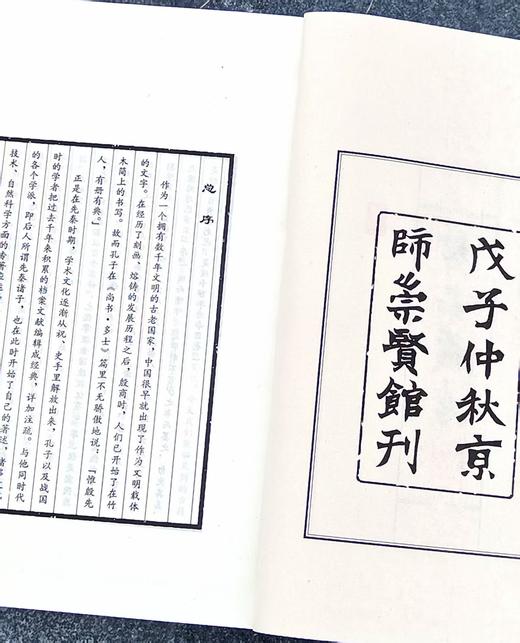 戊子仲秋京
師崇賢館刊
总序
作为一个拥有数千年文明的古老国家，中国很早就出现了作为文明载体
的文字。在经历了刻画、熔铸的发展历程之后，殷商时，人们已开始了在竹
木简上的书写。故而孔子在《尚书·多士》篇里不无骄傲地说：「惟殷先
人，有册有典。」
正是在先秦时期，学术文化逐渐从祝、史手里解放出来，孔子以及战国
时的学者把过去千年来积累的档案文献编辑成经典，详加注疏。与他同时代
的各个学派，即后人所谓先秦诸子，也在此时开始了自己的著述，诸多文
技术、自然科学方面的专著